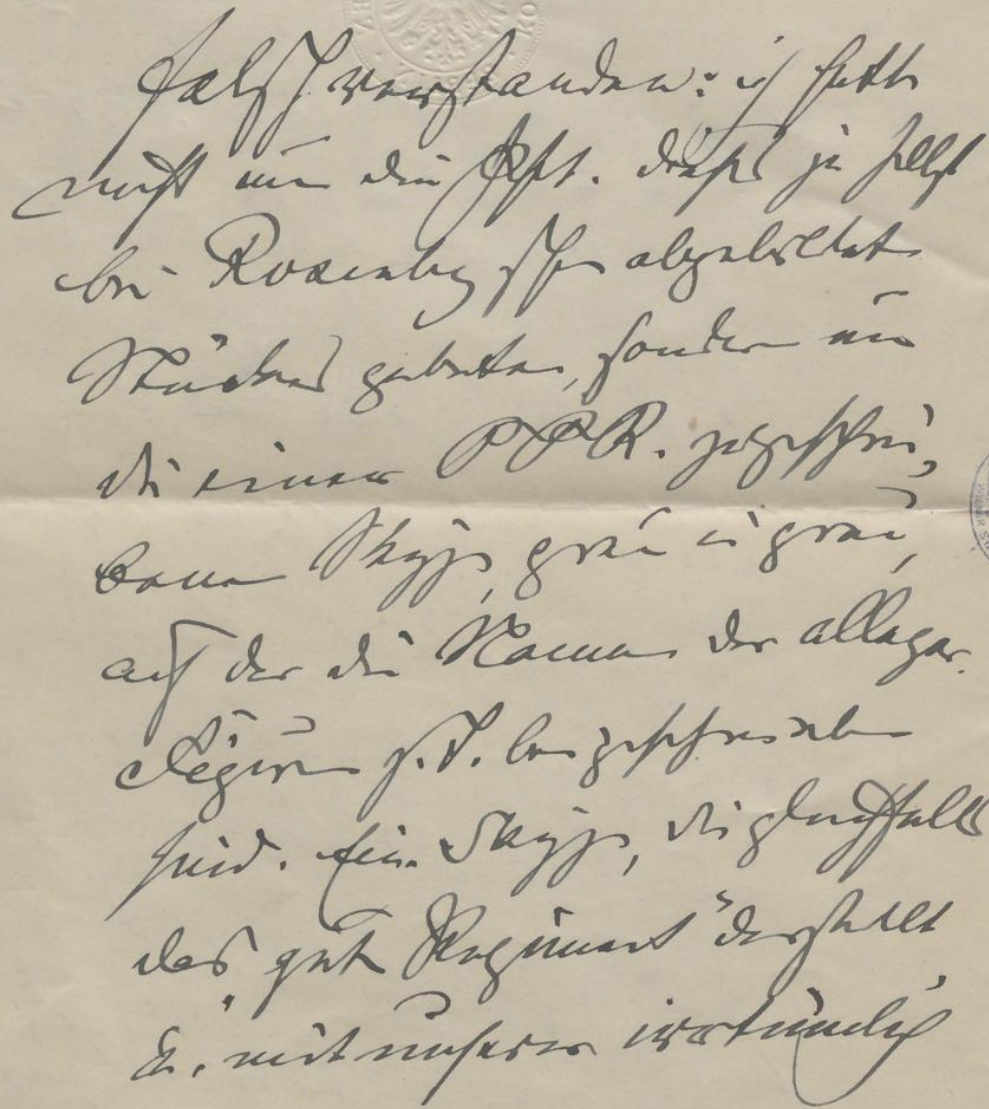 falsch verstanden: ich hatte
nicht um die Pht. dieses ja selbst
bei Rosenberg schon abgebildeten
Stückes gebeten, sondern um
die einer P P R. zugeschrie-
benen Skizze, grau in grau,
auf der die Namen der allegor.
Figuren s. T. beigeschrieben
sind. Eine Skizze, die gleichfalls
das „gute Regiment" darstellt
u. mit unserer irrtümlich